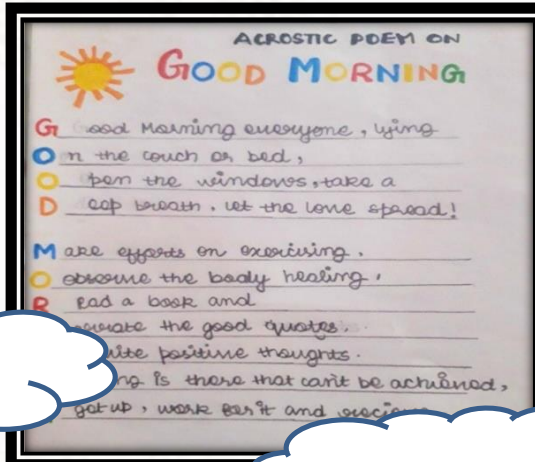 ACROSTIC POEM ON
GOOD MORNING
Good Morning everyone, lying
On the couch or bed,
Open the windows, take a
Deep breath, let the love spread!
Make efforts on exercising.
O observe the body healing.
R Read a book and
the good quotes.
positive thoughts.
is there that can't be achieved,
get up, work for it and